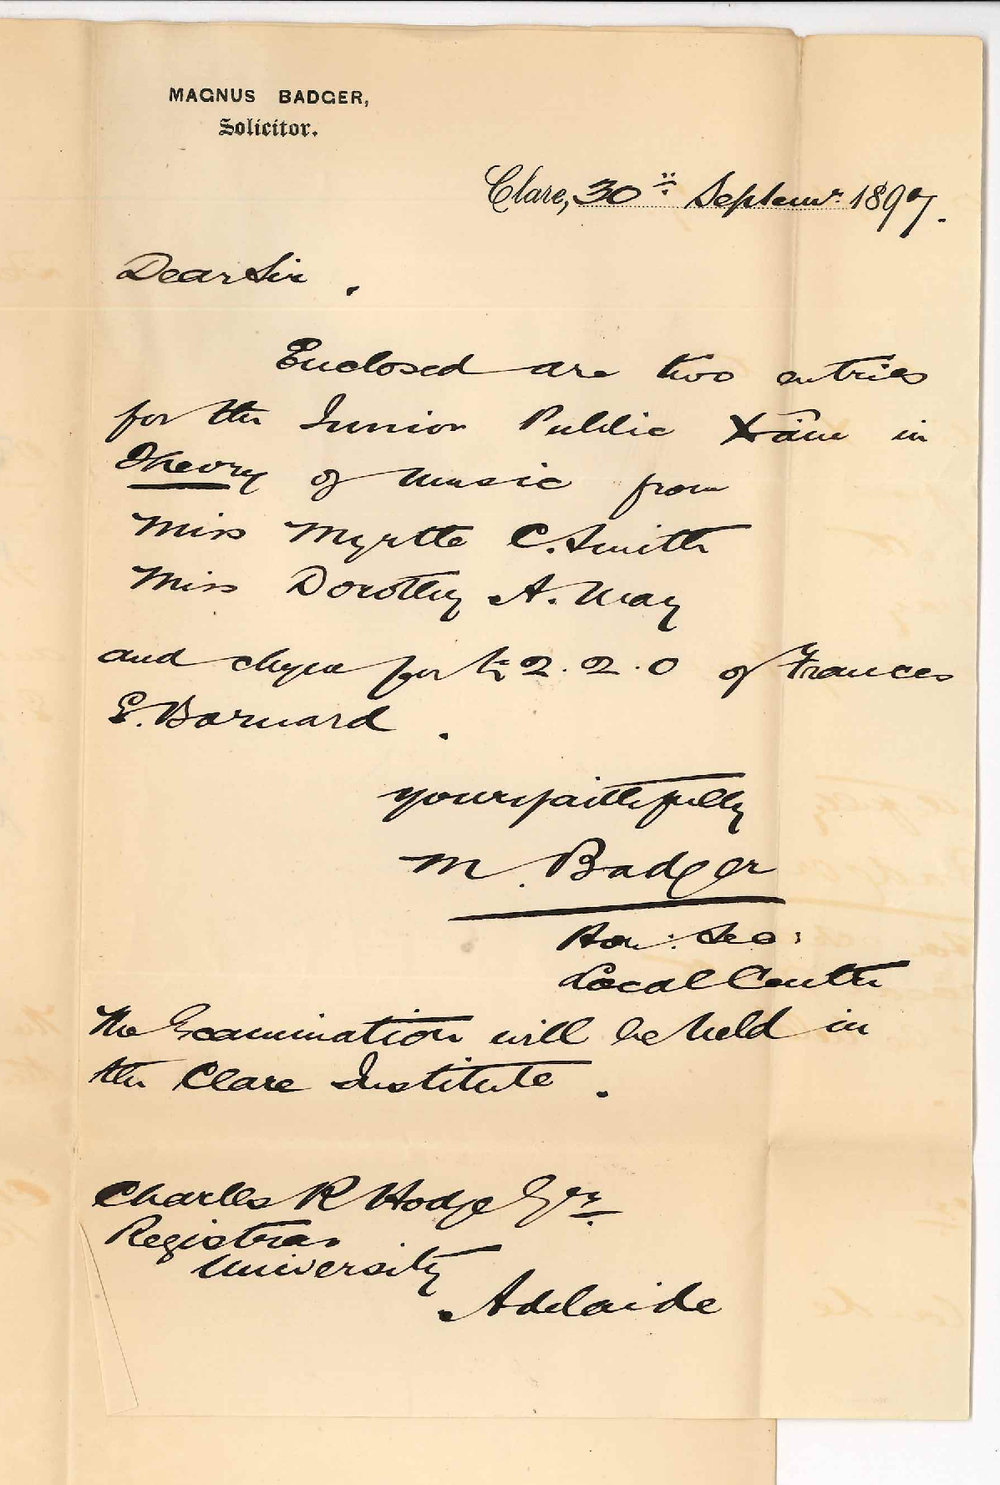 MAGNUS BADGER,
Solicitor.
Clare, 30th Septemr. 1897.
Dear Sir.
Enclosed are two entries
for the Junior Public Xam in
Theory of Music from
Miss Myrtle C. Smith
Miss Dorothy A. May
and cheque for £2.2.0 of Frances
E. Barnard.
Yours faithfully
M. Badger
Hon: Sec:
Local Centre
The Examination will be held in
the Clare Institute.
Charles R Hodge Esqr.
Registrar
University
Adelaide